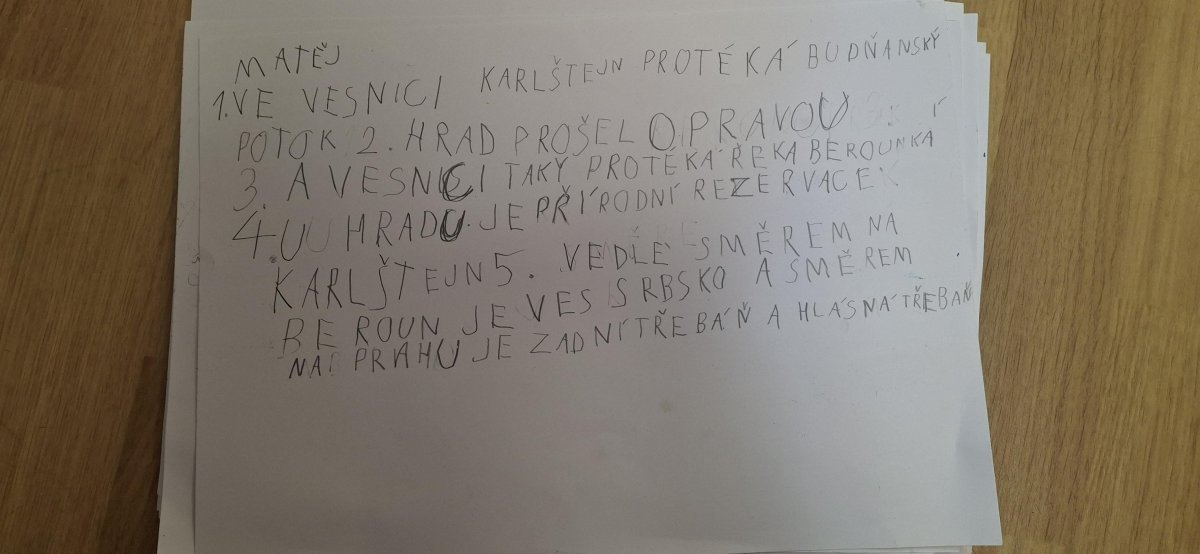 MATĚJ
1. VE VESNICI KARLŠTEJN PROTÉKÁ BUDŇANSKÝ
POTOK 2. HRAD PROŠEL OPRAVOU
3. A VESNICI TAKY PROTÉKÁ ŘEKA BEROUNKA
4. U HRADU JE PŘÍRODNÍ REZERVACE
KARLŠTEJN 5. VEDLE SMĚREM NA
BEROUN JE VES SRBSKO A SMĚREM
NA PRAHU JE ZADNÍ TŘEBÁŇ A HLÁSNÁ TŘEBAŇ